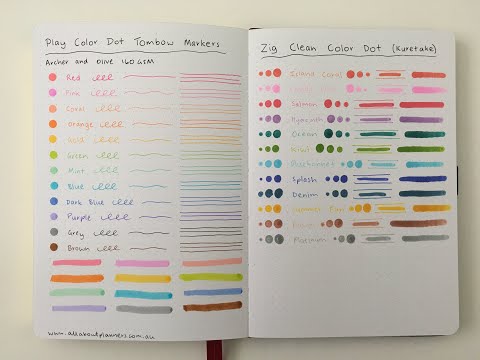 Play Color Dot Tombow Markers
Archer and Olive 160GSM
Red
Pink
Coral
Orange
Gold
Green
Mint
Blue
Dark Blue
Purple
Grey
Brown
www.allaboutplanners.com.au
Zig Clean Color Dot (Kuretake)
Island Coral
Salmon
Hyacinth
Ocean
Kiwi
Splash
Denim
Summer Sun
Platinum